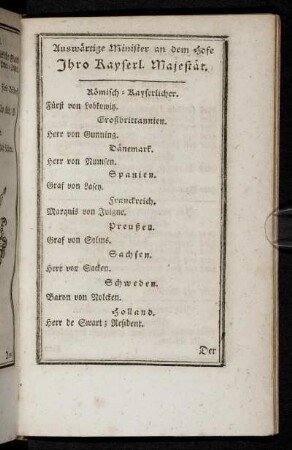 Auswärtige Minister an dem Hofe
Ihro Kayserl. Majestät.
Römisch-Kayserlicher.
Fürst von Lobkowitz.
Großbrittannien.
Herr von Gunning.
Dänemark.
Herr von Numsen.
Spanien.
Graf von Lascy.
Franckreich.
Marquis von Juigne.
Preußen.
Graf von Solms.
Sachsen.
Herr von Sacken.
Schweden.
Baron von Nolcken.
Holland.
Herr de Swart; Resident.
Der